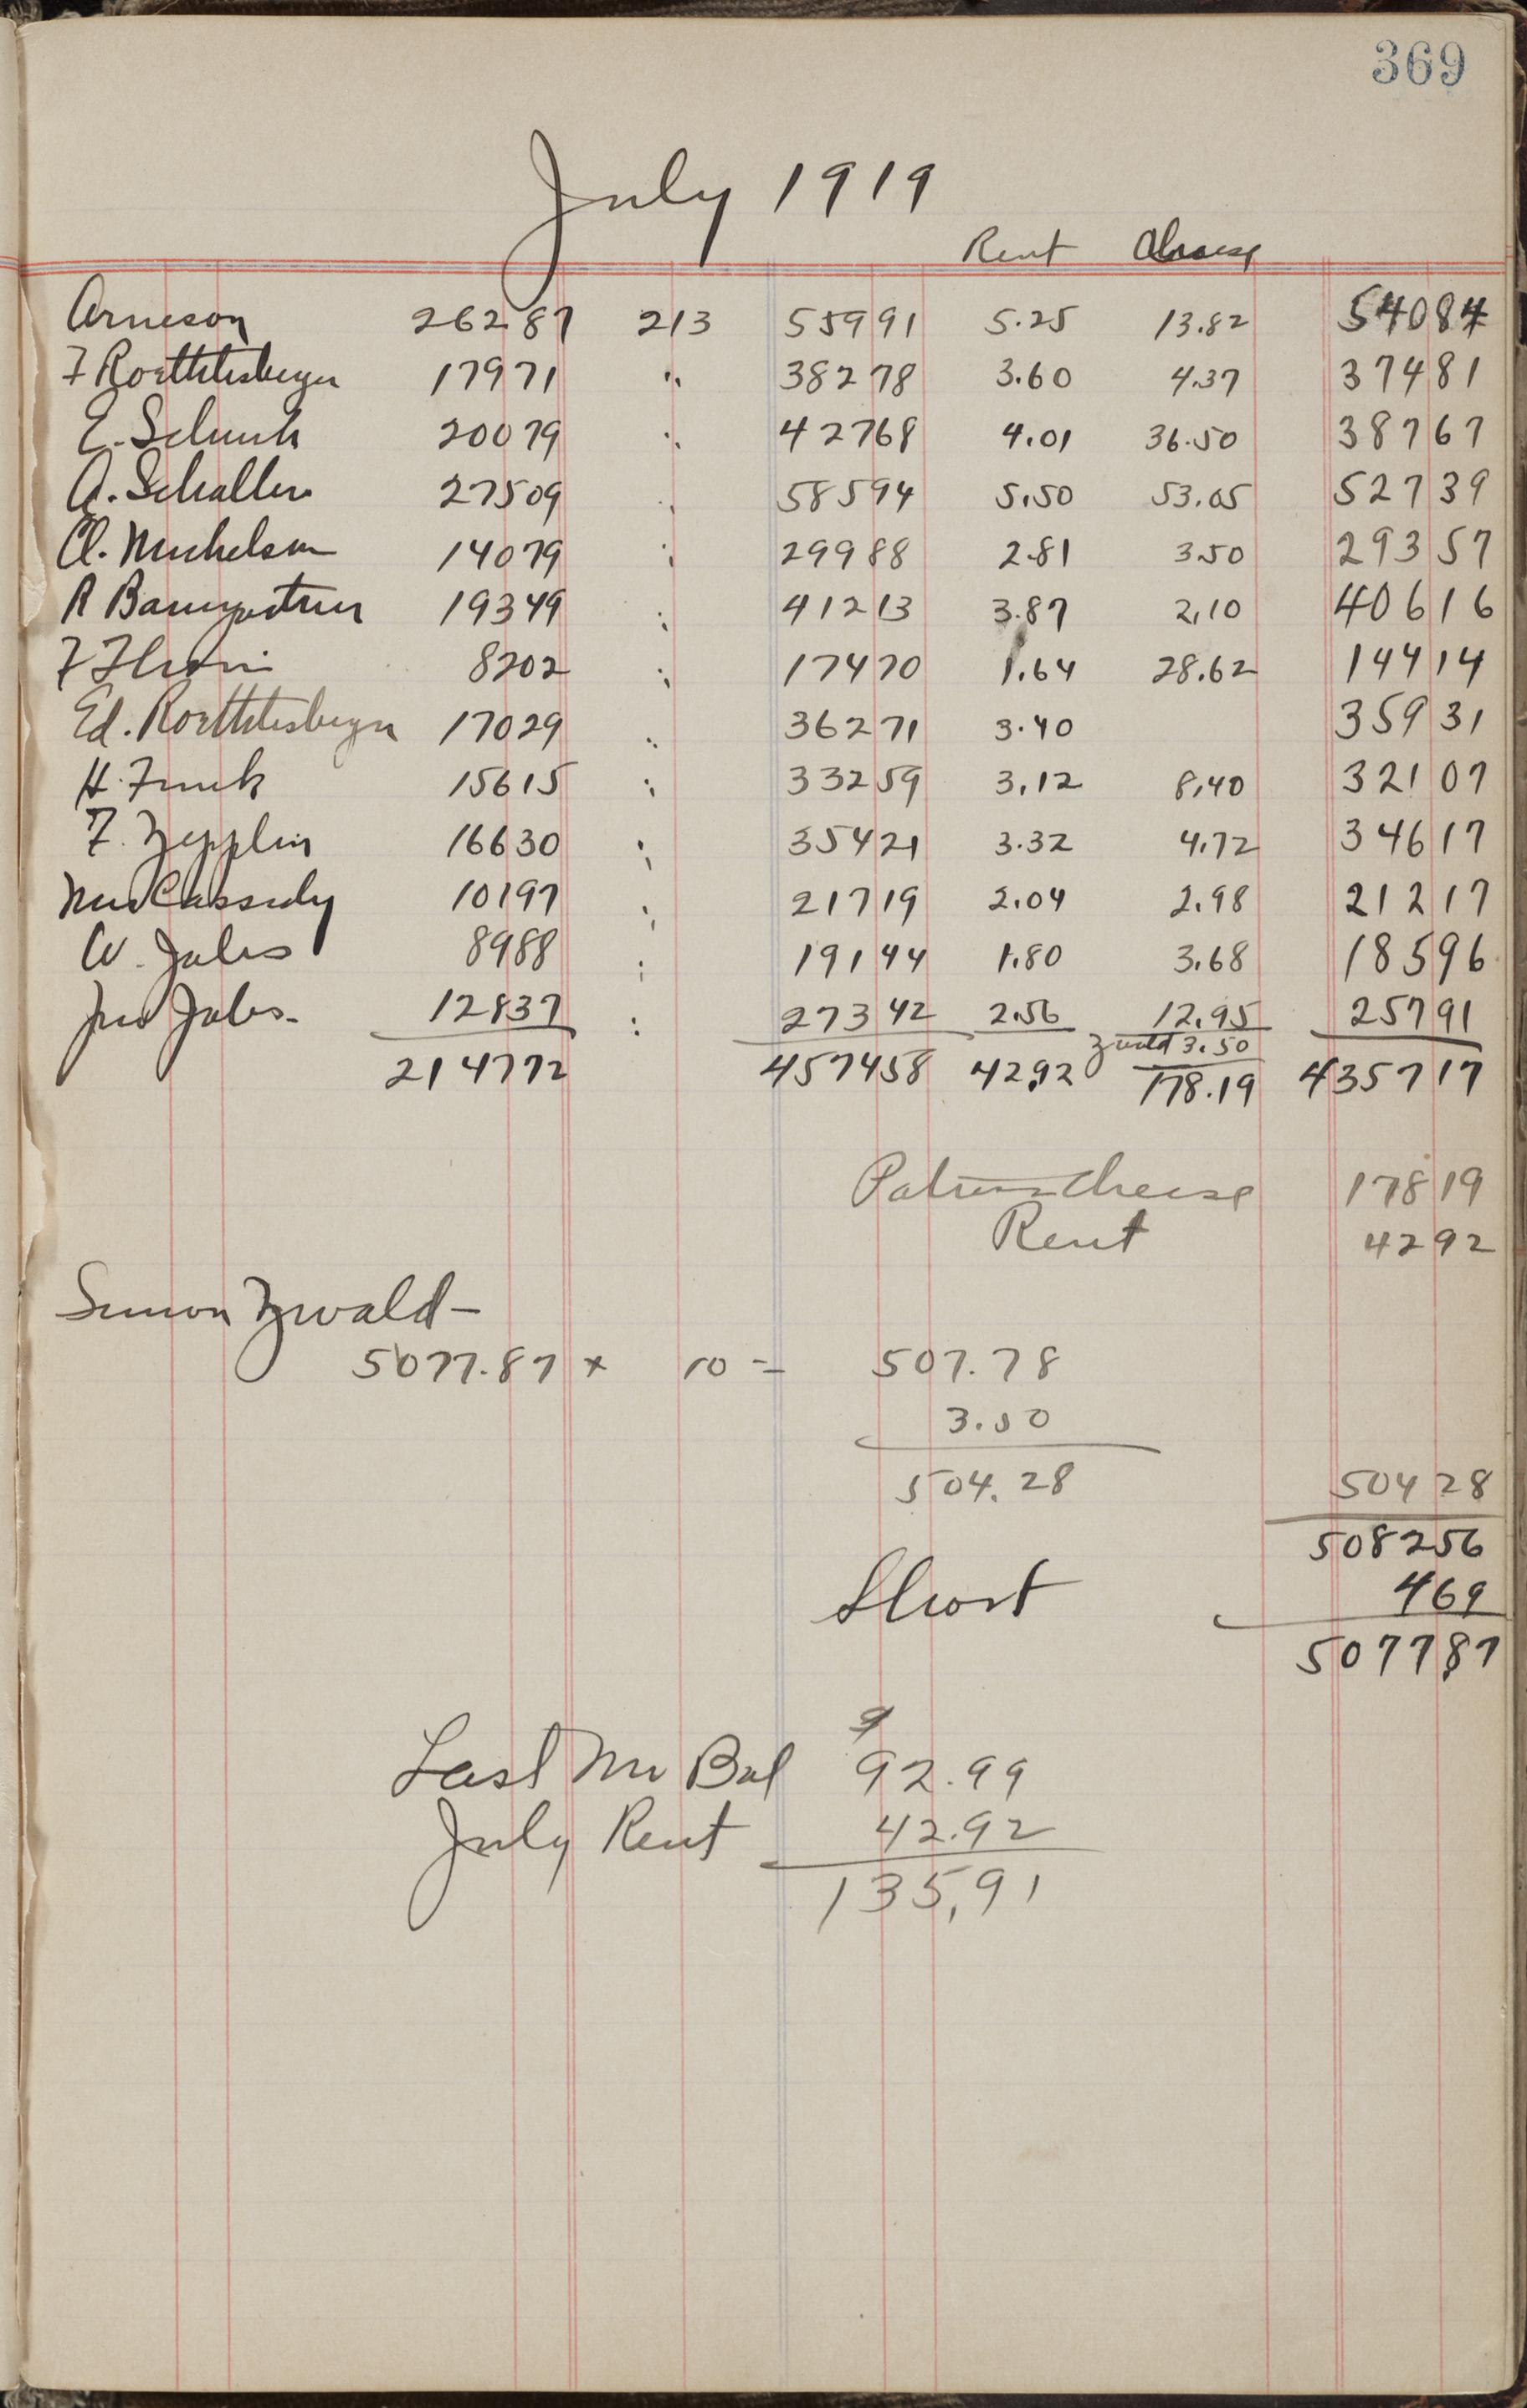 369
July 1919
Rent Cheese
Arneson 26287 213 55991 5.25 13.82 54084
F Roethlisberger 17971 " 38278 3.60 4.37 37481
E. Schunk 20079 " 42768 4.01 36.50 38767
A. Schaller 27509 " 58594 5.50 53.05 52739
Cl. Michelson 14079 " 29988 2.81 3.50 29357
R Baumgartner 19349 " 41213 3.87 2.10 40616
F 8202 " 17470 1.64 28.62 14414
Ed. Roethlisberger 17029 " 36271 3.40 35931
H. Funk 15615 " 33259 3.12 8.40 32107
F. Zepplin 16630 " 35421 3.32 4.72 34617
Mrs Cassidy 10197 " 21719 2.04 2.98 21217
W. Jabs 8988 " 19144 1.80 3.68 18596
Jno Jabs - 12837 " 27342 2.56 12.95 25791
Zwald 3.50
214772 457458 42.92 178.19 435717
Patrons Cheese 17819
Rent 4292
Simon Zwald -
5077.87 x 10 = 507.78
3.50
504.28 50428
508256
Short 469
507787
Last Mo Bal 92.99
July Rent 42.92
135,91